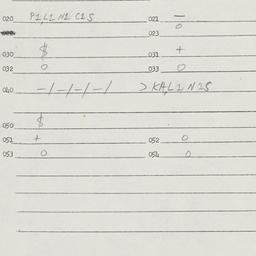 020 P1L1N1 C1S 021 —
023 0
030 $ 031 +
032 0 033 0
040 -/-/-/-/ > KAL1N1S
050 $
051 + 052 0
053 0 054 0